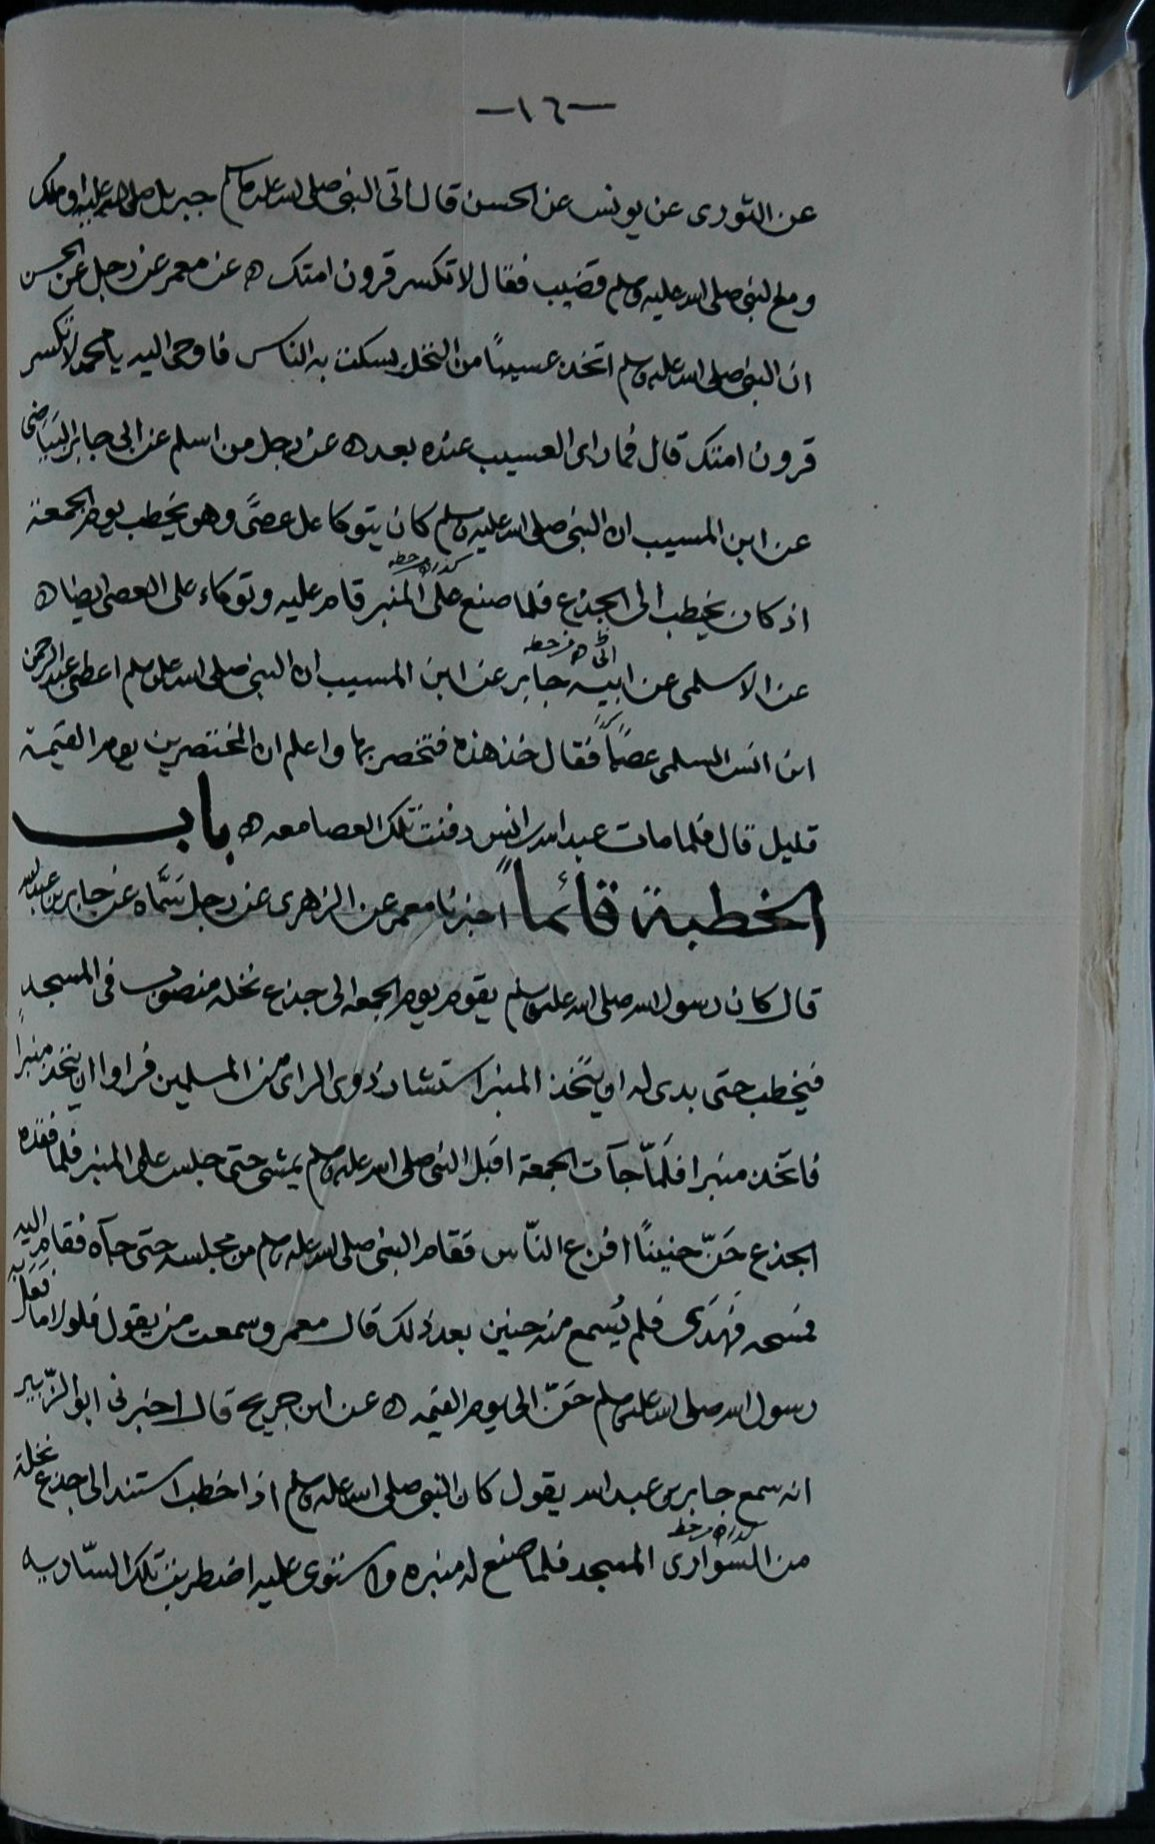 -١٦-
عن الثورى عن يونس عن الحسن قال اتى النبى صلى الله عليه وسلم جبريل صلى الله عليه او ملك
ومع النبى صلى الله عليه وسلم قضيب فقال لا تكسر قرون امتك ه عن معمر عن رجل عن الحسن
ان النبى صلى الله عليه وسلم اتخذ عسيبًا من النخل يسكت به الناس فاوحى اليه يا محمد لا تكسر
قرون امتك قال فما راى العسيب عنده بعد ه عن رجل من اسلم عن ابى جابر البياضى
عن ابن المسيب ان النبى صلى الله عليه وسلم كان يتوكا على عصًى وهو يخطب يوم الجمعة
اذ كان يخطب الى الجذع فلما صنع على المنبر قام عليه وتوكاء على العصى ايضا ه
عن الاسلمى عن ابيه جابر عن ابن المسيب ان النبى صلى الله عليه وسلم اعطى عبد الرحمن
ابن انس السلمى عصًا فقال خذ هذه فتخصر بها واعلم ان المختصرين يوم القيمة
قليل قال فلما مات عبد الله بن انس دفنت تلك العصا معه ه باب
الخطبة قائماً اخبرنا معمر عن الزهرى عن رجل سَمَّاه عن جابر بن عبد الله
قال كان رسول الله صلى الله عليه وسلم يقوم يوم الجمعه الى جذع نخله منصوب فى المسجد
فيخطب حتى بدى له ان يتخذ المنبر استشار ذوى الراى من المسلمين فراوا ان يتخذ منبرًا
فاتخذ منبرا فلمّا جآت الجمعة اقبل النبى صلى الله عليه وسلم يمشى حتى جلس على المنبر فلما فقده
الجذع حَنّ حنينًا افزع النّاس فقام النبى صلى الله عليه وسلم من مجلسه حتى جآه فقام اليه
فمسحه فَهَدَى فلم يُسمع منه حنين بعد ذلك قال معمر وسمعت من يقول فلولا ما فعل به
رسول الله صلى الله عليه وسلم حَنّ الى يوم القيمه ه عن ابن جريج قال اخبرنى ابو الزّبير
انه سمع جابر بن عبد الله يقول كان النبى صلى الله عليه وسلم اذا خطب استند الى جذع نخلة
من السوارى المسجد فلما صنع له منبره واستوى عليه اضطربت تلك السّاريه